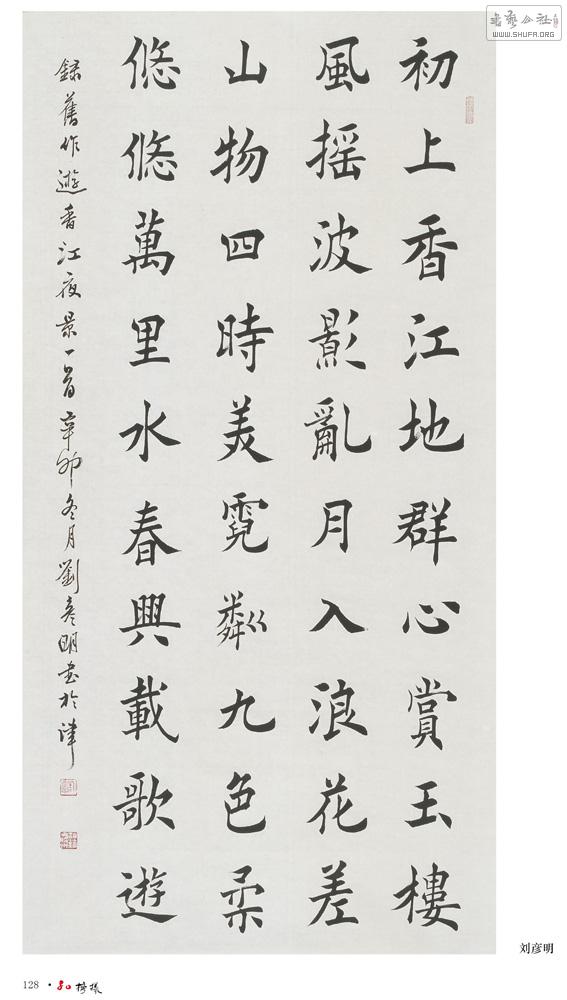 初上香江地群心賞玉樓
風摇波影亂月入浪花差
山物四時美霓粼九色柔
悠悠萬里水春興載歌遊
録舊作遊香江夜景一首辛卯冬月劉彦明書於津
刘彦明
128
WWW.SHUFA.ORG